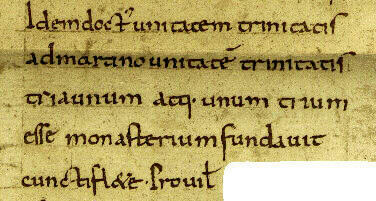 Idem doct͛ unitatem trinitatis
ad martino unitatē trinitatis
tria unum atq· unum trium
esse monasterium fundavit
cunctis